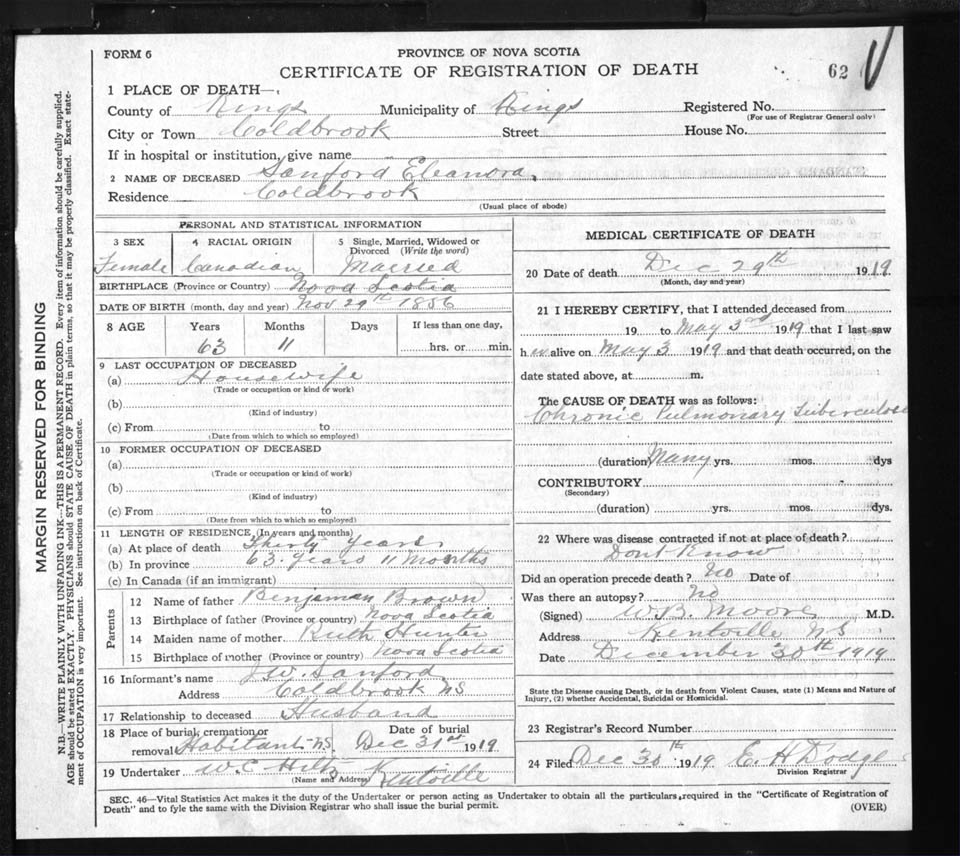 FORM 6
PROVINCE OF NOVA SCOTIA
CERTIFICATE OF REGISTRATION OF DEATH
62
1 PLACE OF DEATH—
County of Kings Municipality of Kings Registered No.
(For use of Registrar General only)
City or Town Coldbrook Street House No.
If in hospital or institution, give name
2 NAME OF DECEASED Sanford Eleanora
Residence Coldbrook
(Usual place of abode)
PERSONAL AND STATISTICAL INFORMATION
3 SEX 4 RACIAL ORIGIN 5 Single, Married, Widowed or Divorced (Write the word)
Female Canadian Married
BIRTHPLACE (Province or Country) Nova Scotia
DATE OF BIRTH (month, day and year) Nov 29th 1856
8 AGE Years Months Days If less than one day,
63 11 hrs. or min.
9 LAST OCCUPATION OF DECEASED
(a) Housewife
(Trade or occupation or kind of work)
(b)
(Kind of industry)
(c) From to
(Date from which to which so employed)
10 FORMER OCCUPATION OF DECEASED
(a)
(Trade or occupation or kind of work)
(b)
(Kind of industry)
(c) From to
(Date from which to which so employed)
11 LENGTH OF RESIDENCE (In years and months)
(a) At place of death Thirty Years
(b) In province 63 Years 11 Months
(c) In Canada (if an immigrant)
Parents
12 Name of father Benjaman Brown
13 Birthplace of father (Province or country) Nova Scotia
14 Maiden name of mother Ruth Hunter
15 Birthplace of mother (Province or country) Nova Scotia
16 Informant's name J.W. Sanford
Address Coldbrook NS
17 Relationship to deceased Husband
18 Place of burial, cremation or removal Habitant NS. Date of burial Dec 31st 1919
19 Undertaker W.C. Hiltz Kentville
(Name and Address)
MEDICAL CERTIFICATE OF DEATH
20 Date of death Dec 29th 1919
(Month, day and year)
21 I HEREBY CERTIFY, that I attended deceased from
19 to May 3rd 1919 that I last saw
h er alive on May 3 1919 and that death occurred, on the
date stated above, at m.
The CAUSE OF DEATH was as follows:
Chronic Pulmonary Tuberculosis
(duration) Many yrs. mos. dys
CONTRIBUTORY
(Secondary)
(duration) yrs. mos. dys.
22 Where was disease contracted if not at place of death?
Dont Know
Did an operation precede death? No Date of
Was there an autopsy? No
(Signed) W.B. Moore M.D.
Address Kentville NS
Date December 30th 1919
State the Disease causing Death, or in death from Violent Causes, state (1) Means and Nature of
Injury, (2) whether Accidental, Suicidal or Homicidal.
23 Registrar's Record Number
24 Filed Dec 30th 1919 E. H Dodge
Division Registrar
SEC. 46—Vital Statistics Act makes it the duty of the Undertaker or person acting as Undertaker to obtain all the particulars required in the "Certificate of Registration of
Death" and to fyle the same with the Division Registrar who shall issue the burial permit.
(OVER)
MARGIN RESERVED FOR BINDING
N.B.—WRITE PLAINLY WITH UNFADING INK—THIS IS A PERMANENT RECORD. Every item of information should be carefully supplied.
AGE should be stated EXACTLY. PHYSICIANS should STATE CAUSE OF DEATH in plain terms, so that it may be properly classified. Exact state-
ment of OCCUPATION is very important. See instructions on back of Certificate.